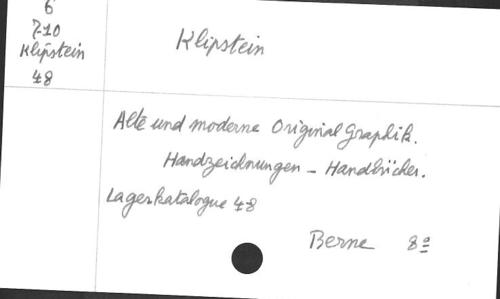 6
7-10
Klipstein
48
Klipstein
Alte und moderne Original Graphik.
Handzeichnungen - Handbücher.
Lagerkatalogue 48
Berne 8º